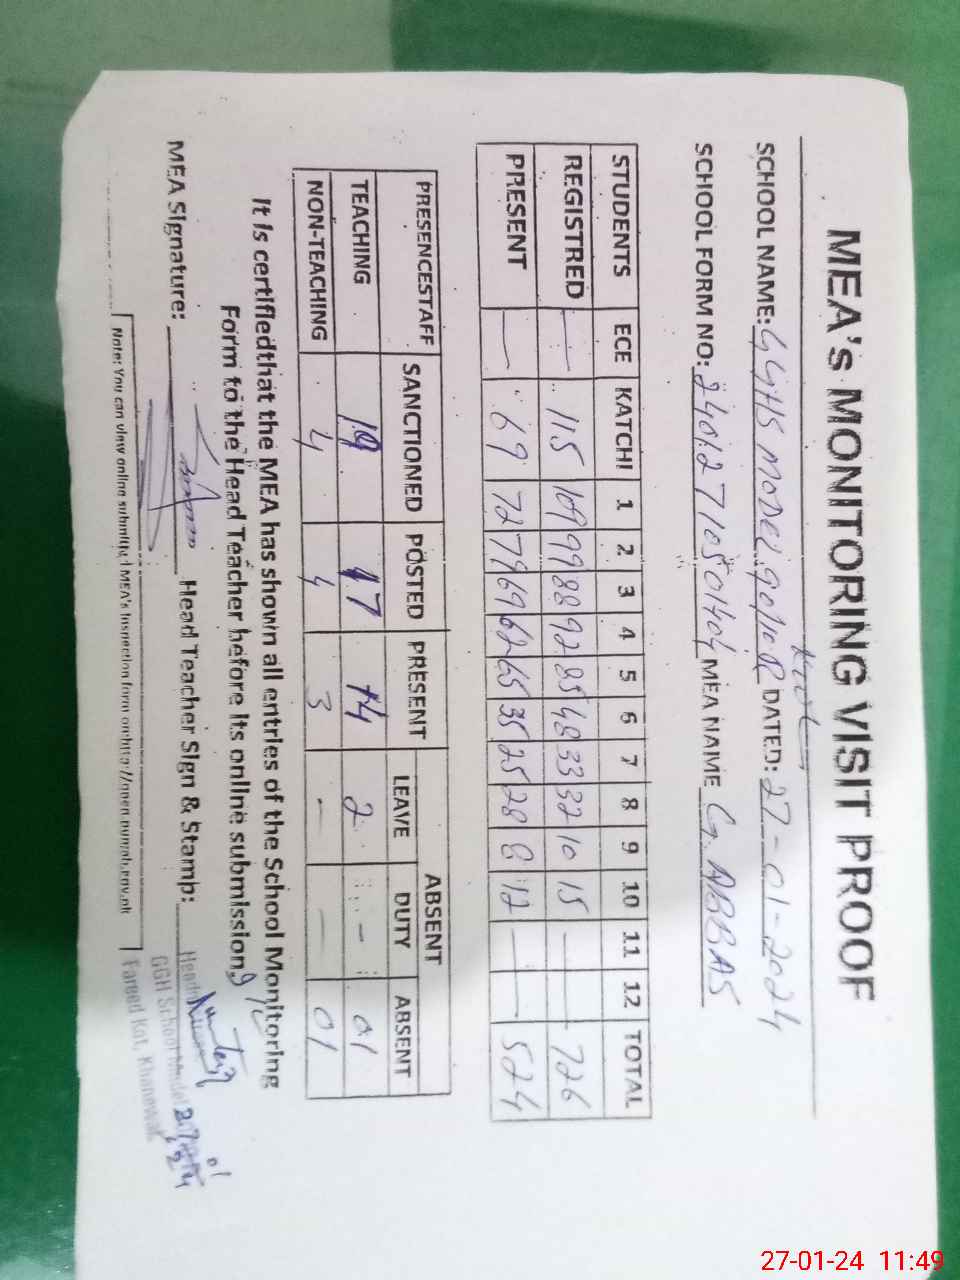 MEA's MONITORING VISIT PROOF
SCHOOL NAME: GGHS MODEL DATED: 27-01-2024
SCHOOL FORM NO: MEA NAME G. ABBAS
STUDENTS ECE KATCHI 1 2 3 4 5 6 7 8 9 10 11 12 TOTAL
REGISTRED — 115 109 99 88 92 85 48 33 32 10 15 — — 726
PRESENT — 69 72 79 69 62 65 35 25 28 8 12 — — 524
PRESENCESTAFF SANCTIONED POSTED PRESENT ABSENT
LEAVE DUTY ABSENT
TEACHING 19 17 14 2 - 01
NON-TEACHING 4 4 3 - — 01
It is certifiedthat the MEA has shown all entries of the School Monitoring
Form to the Head Teacher before its online submission.
MEA Signature: Head Teacher Sign & Stamp:
GGH School Model
Fareed Kot, Khanewal
Note: You can view online submitted MEA's Inspection form on
27-01-24 11:49